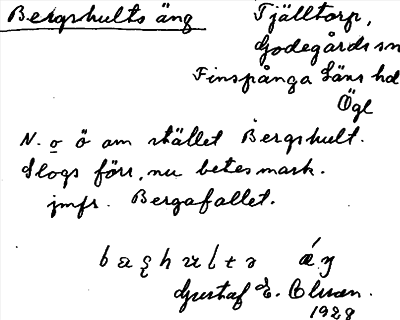 Bergshults äng
Tjälltorp,
Godegårds sn
Finspånga läns hd
Ögl
N. o ö om stället Bergshult.
Slogs förr, nu betesmark.
jmfr. Bergafallet.
Gustaf E. Olsson.
1928